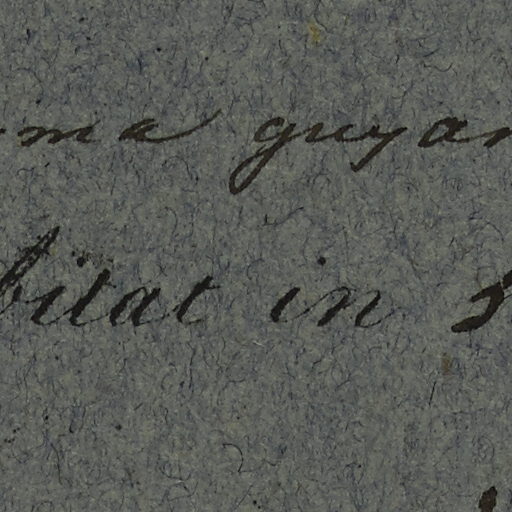 ma guyan
bitat in